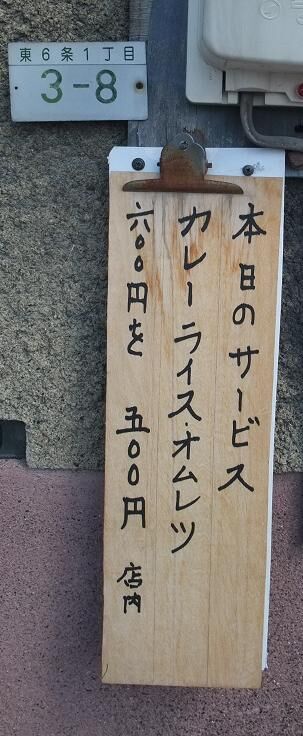 東6条1丁目
3-8
本日のサービス
カレーライス・オムレツ
六〇〇円を 五〇〇円 店内